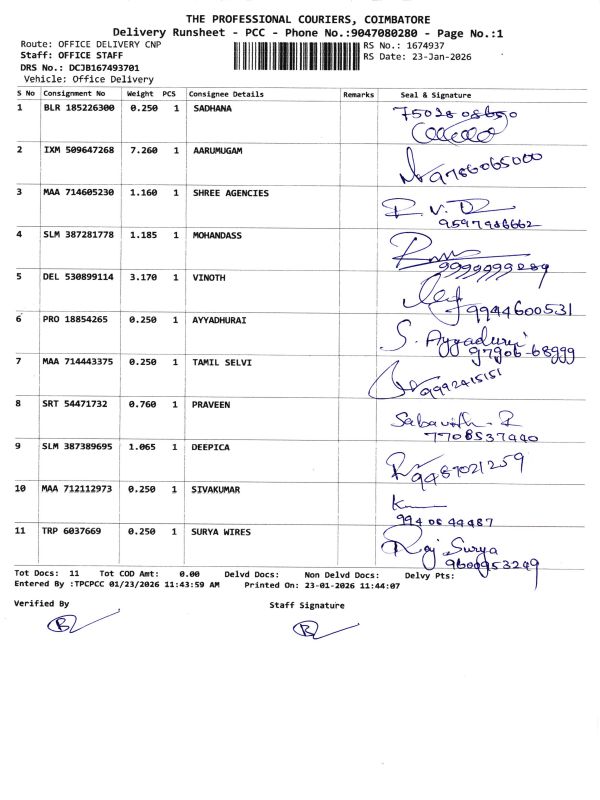 THE PROFESSIONAL COURIERS, COIMBATORE
Delivery Runsheet - PCC - Phone No.:9047080280 - Page No.:1
Route: OFFICE DELIVERY CNP
RS No.: 1674937
Staff: OFFICE STAFF
RS Date: 23-Jan-2026
DRS No.: DCJB167493701
Vehicle: Office Delivery
S No Consignment No Weight PCS Consignee Details Remarks Seal & Signature
1 BLR 185226300 0.250 1 SADHANA
2 IXM 509647268 7.260 1 AARUMUGAM
9786065000
3 MAA 714605230 1.160 1 SHREE AGENCIES
R. V.
9597986662
4 SLM 387281778 1.185 1 MOHANDASS
9999999289
5 DEL 530899114 3.170 1 VINOTH
9944600531
6 PRO 18854265 0.250 1 AYYADHURAI
S. Ayyadurai
97906-68999
7 MAA 714443375 0.250 1 TAMIL SELVI
9992415151
8 SRT 54471732 0.760 1 PRAVEEN
7708537440
9 SLM 387389695 1.065 1 DEEPICA
9487021259
10 MAA 712112973 0.250 1 SIVAKUMAR
9940644487
11 TRP 6037669 0.250 1 SURYA WIRES
Raj Surya
9600953249
Tot Docs: 11 Tot COD Amt: 0.00 Delvd Docs: Non Delvd Docs: Delvy Pts:
Entered By :TPCPCC 01/23/2026 11:43:59 AM Printed On: 23-01-2026 11:44:07
Verified By
Staff Signature